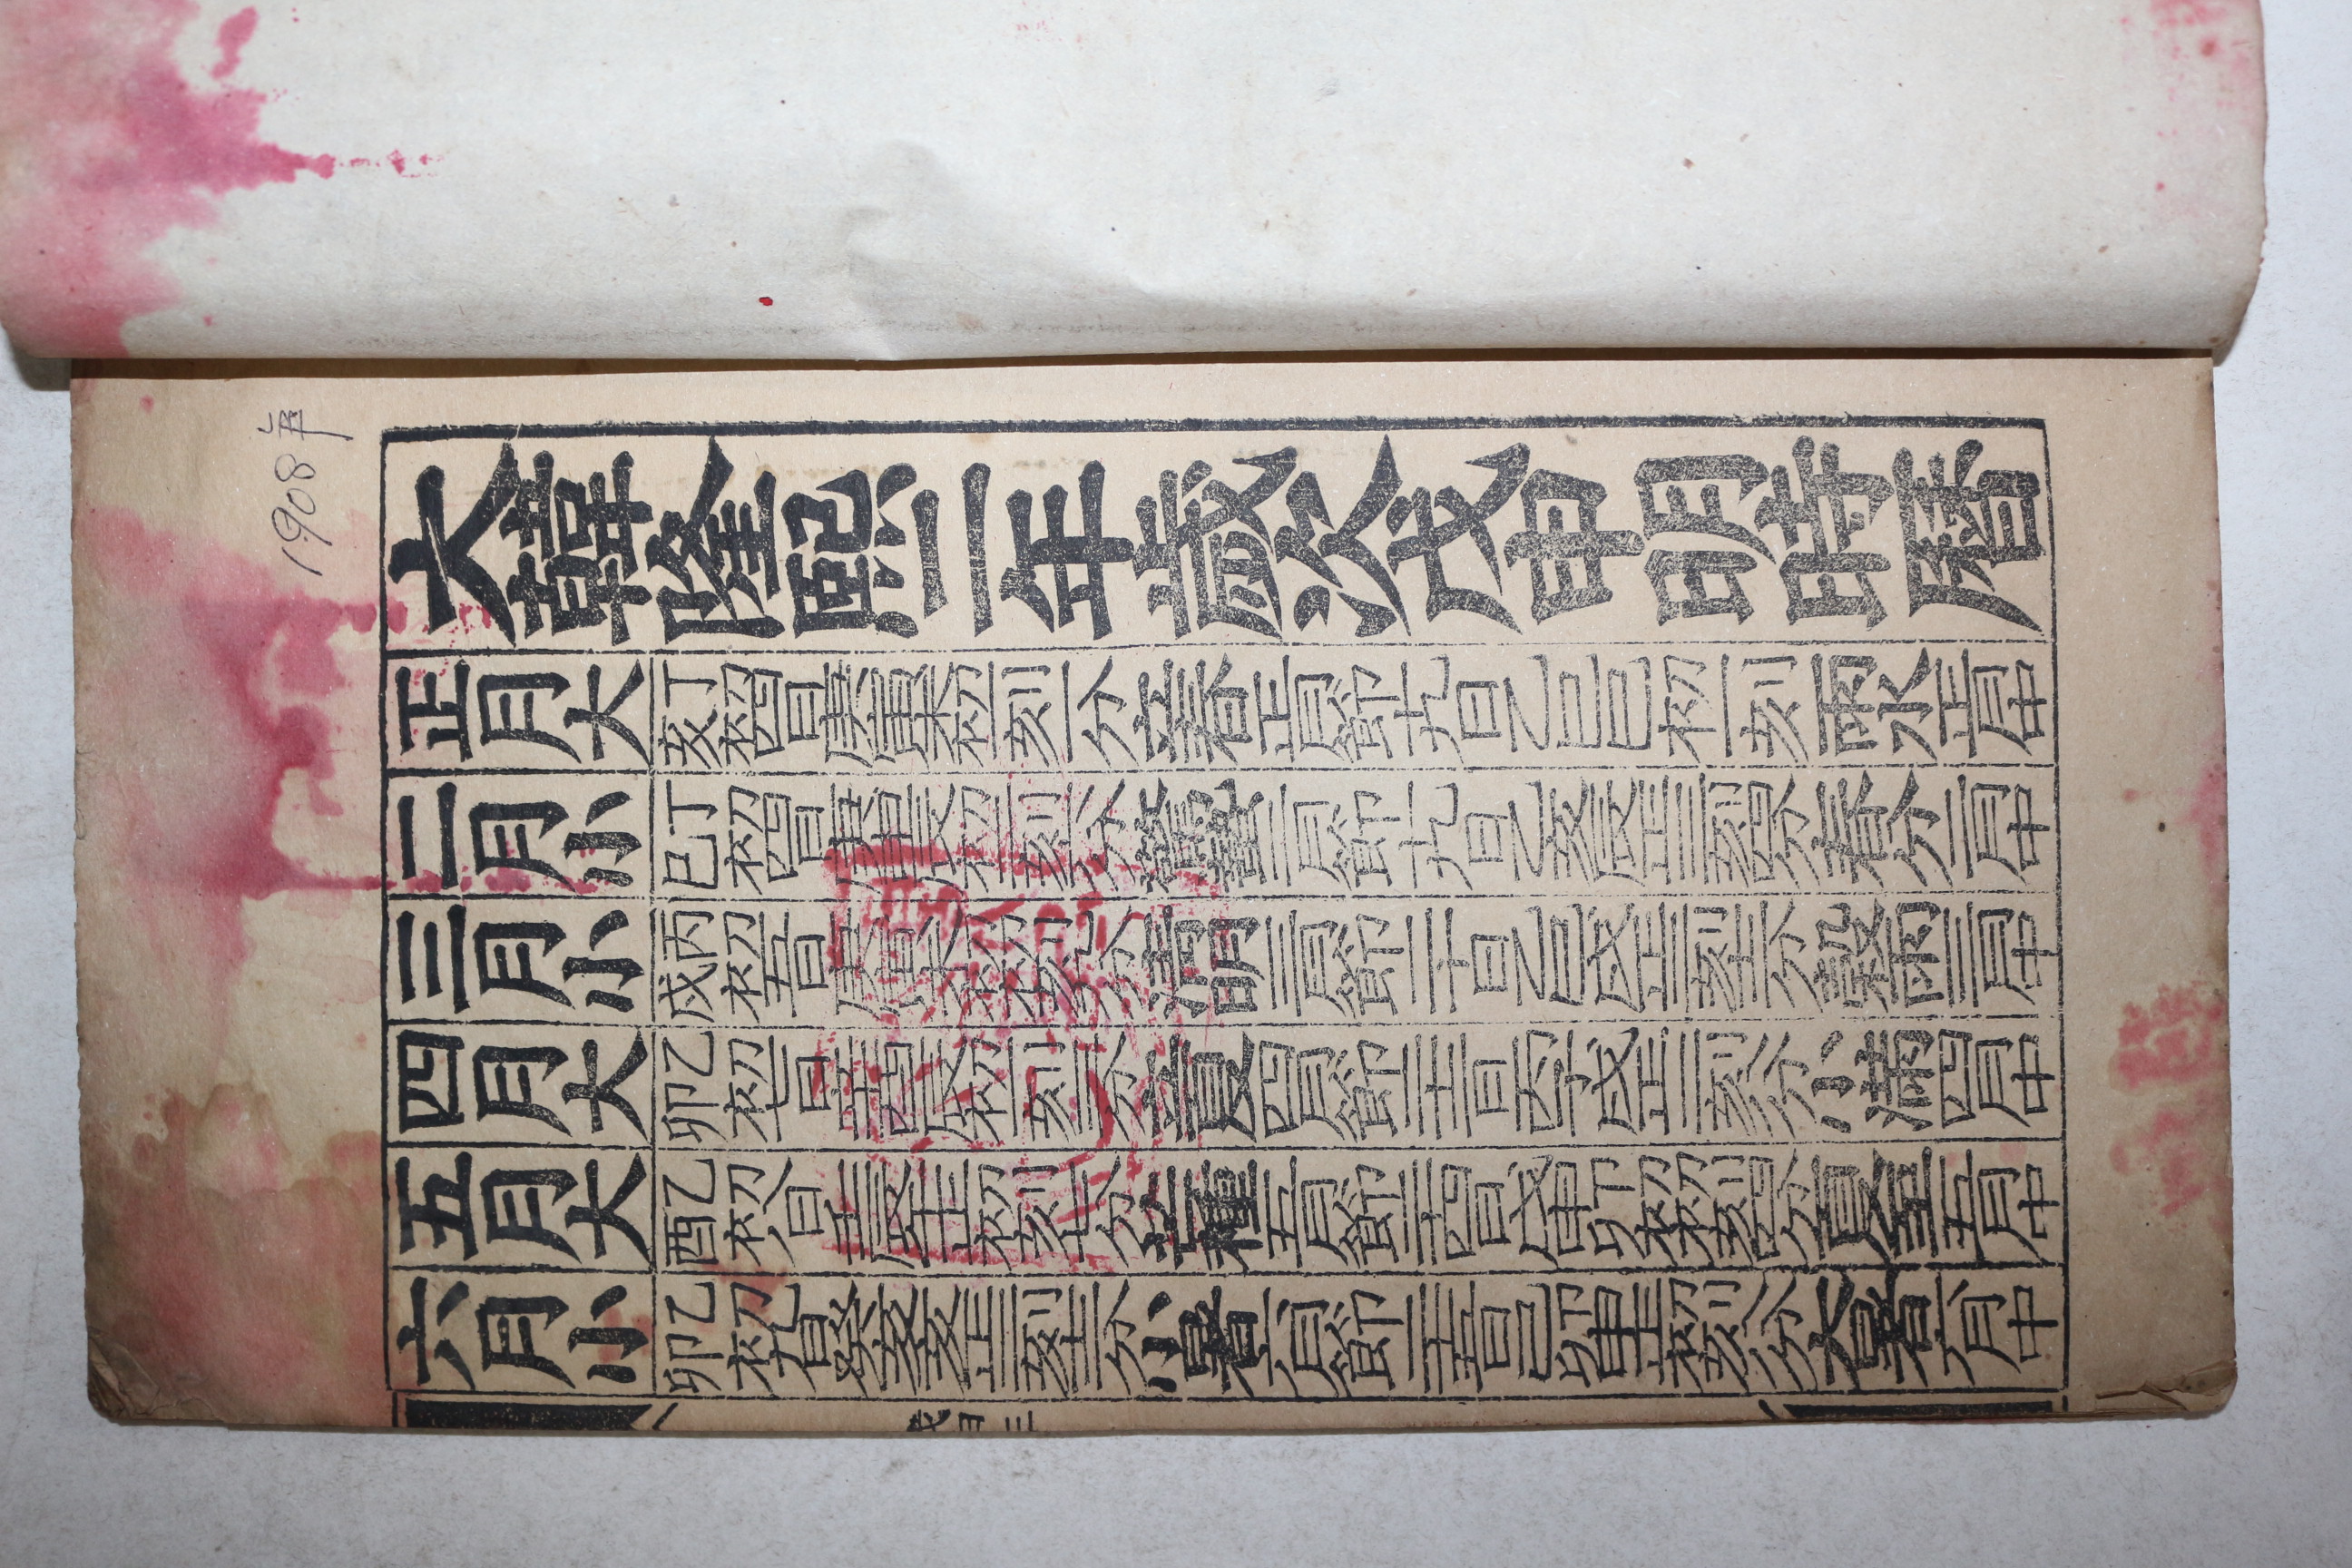 1908年
大韓隆熙二年歲次戊申明時曆
正月大 丁亥 初四日庚寅未初一刻一分立春正月節十九日乙巳巳初一刻雨水正月中
二月小 丁巳 初四日庚申辰初二刻六分驚蟄二月節十九日乙亥辰正三刻四分春分二月中
三月小 丙戌 初五日庚寅未初初刻九分淸明三月節二十日乙巳戌正二刻十二分穀雨三月中
四月大 乙卯 初七日辛酉辰初一刻三分立夏四月節二十二日丙子戌正二刻八分小滿四月中
五月大 乙酉 初八日壬辰午正初刻七分芒種五月節二十四日戊申卯初初刻四分夏至五月中
六月小 乙卯 初九日癸亥亥正三刻十二分小暑六月節二十五日己卯申正初刻八分大暑六月中